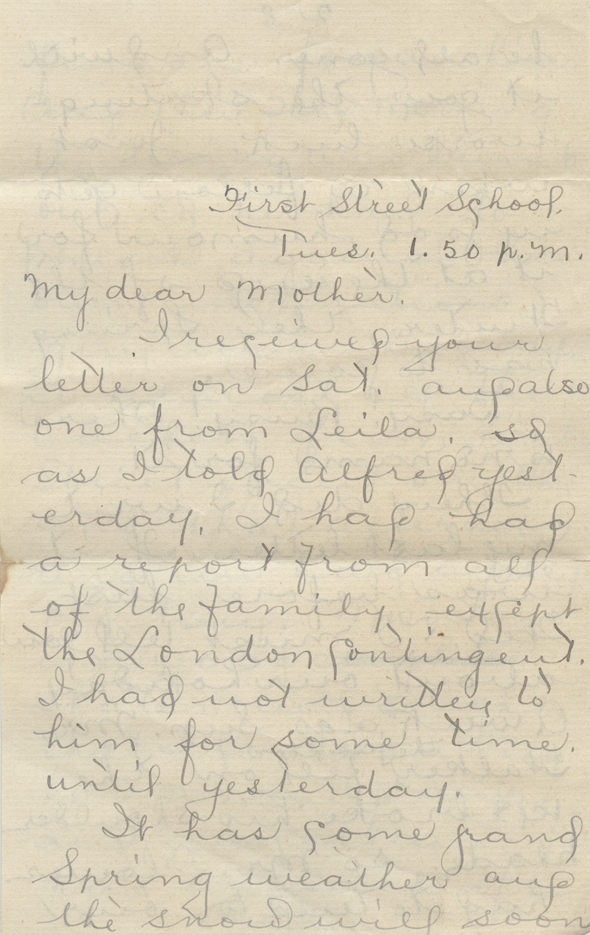 First Street School.
Tues. 1.50 p.m.
My dear Mother.
I received your
letter on Sat. and also
one from Leila, so
as I told Alfred yest-
erday, I had had
a report from all
of the family except
the London contingent.
I had not written to
him for some time.
until yesterday.
It has come grand
Spring weather and
the snow will soon